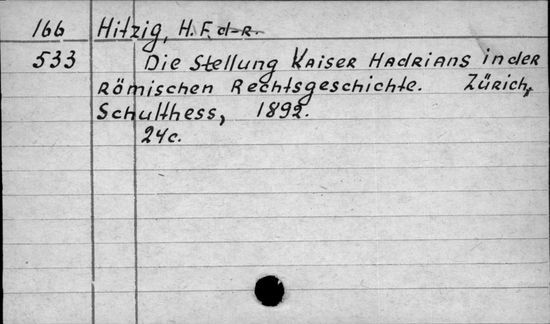 166 Hitzig, H. F. d-R.
533 Die Stellung Kaiser Hadrians in der
Römischen Rechtsgeschichte. Zürich,
Schulthess, 1892.
24c.